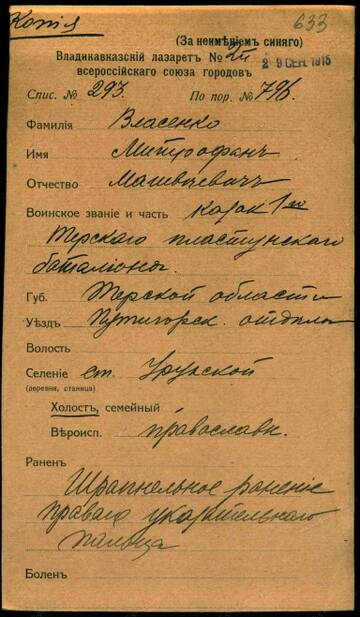 Копія
633
(За неимѣніемъ синяго)
Владикавказскій лазаретъ № 2й
29 СЕН. 1915
всероссійскаго союза городовъ
Спис. № 293. По пор. № 796.
Фамилія Власенко
Имя Митрофанъ
Отчество Матвѣевичъ
Воинское званіе и часть казак 1го
Терского пластунскаго
баталіона.
Губ. Терской области
Уѣздъ Пятигорск. отдѣла
Волость
Селеніе ст. Урухской
(деревня, станица)
Холостъ, семейный
Вѣроисп. православн.
Раненъ
Шрапнельное раненіе
праваго указательнаго
пальца
Боленъ